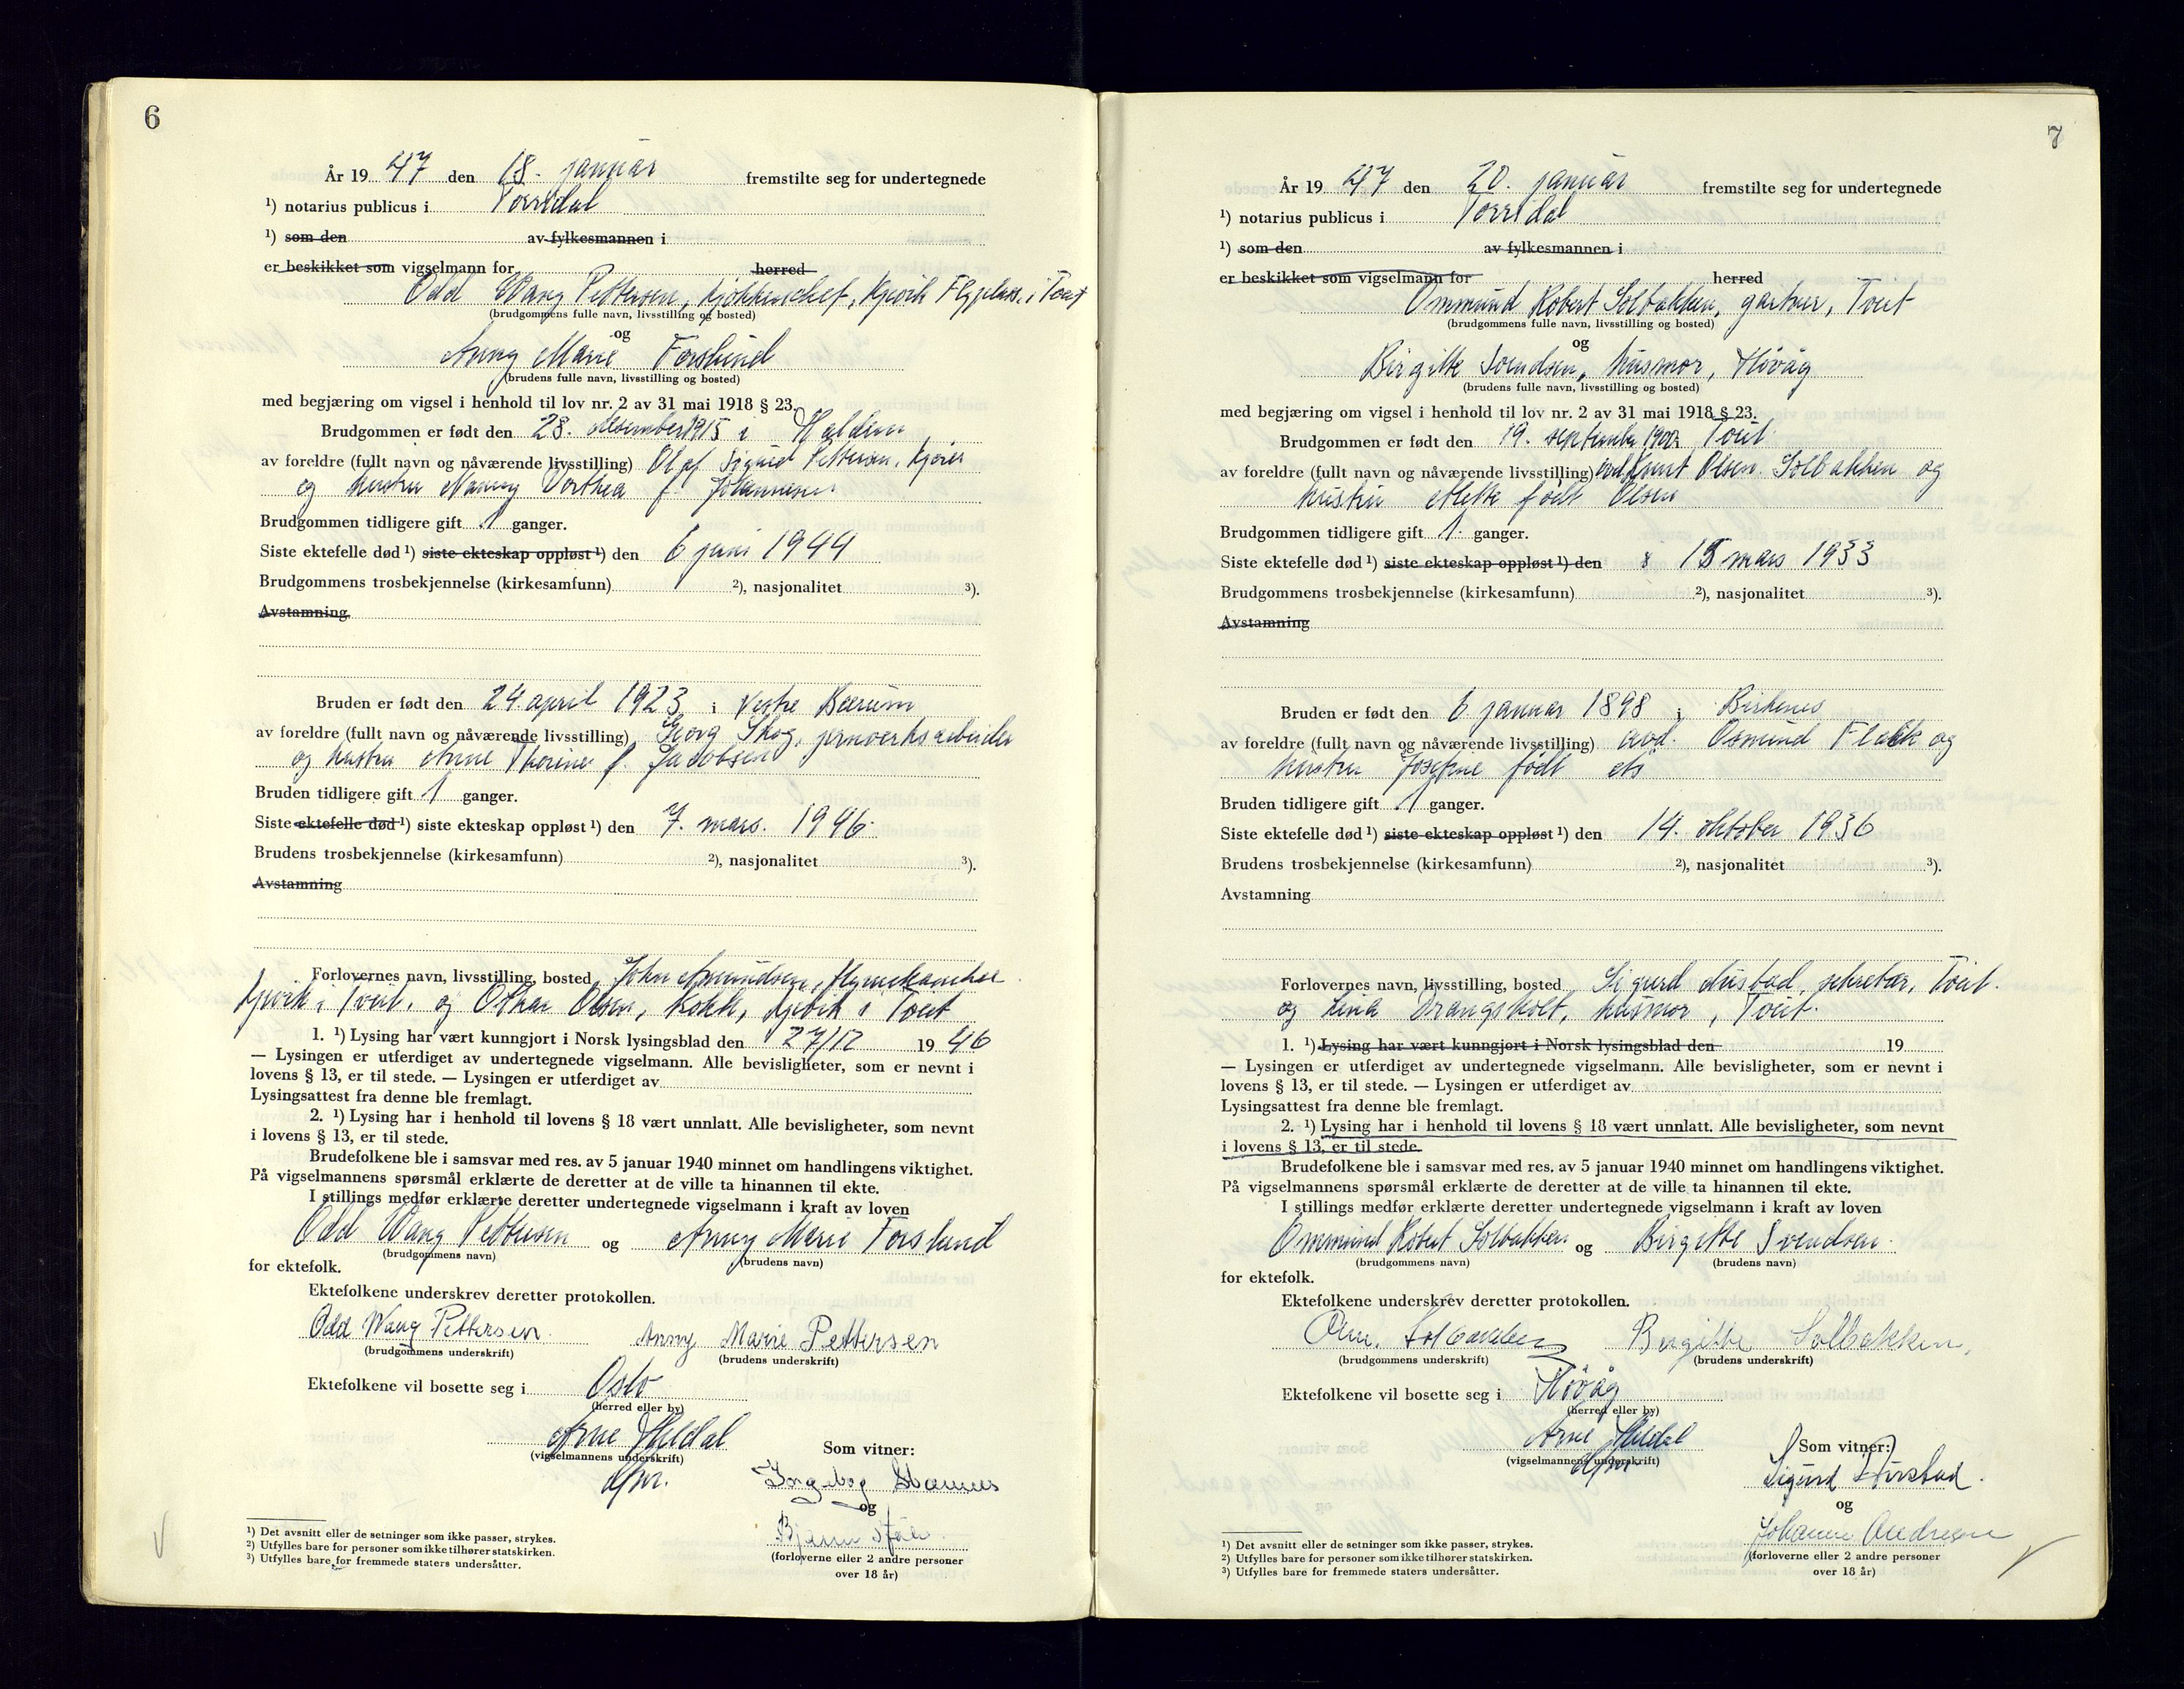 6
År 19 47 den 18. januar fremstilte seg for undertegnede
¹) notarius publicus i Torridal
¹) som den av fylkesmannen i
er beskikket som vigselmann for herred
Odd Wang Pettersen, kjøkkenchef, Kjevik Flyplass i Tveit
(brudgommens fulle navn, livsstilling og bosted)
og
Anny Marie Forslund
(brudens fulle navn, livsstilling og bosted)
med begjæring om vigsel i henhold til lov nr. 2 av 31 mai 1918 § 23.
Brudgommen er født den 28. desember 1915 i Halden
av foreldre (fullt navn og nåværende livsstilling) Olaf Sigurd Pettersen,
og hustru Nanny Dorthea f. Johannesen
Brudgommen tidligere gift 1 ganger.
Siste ektefelle død ¹) siste ekteskap oppløst ¹) den 6 juni 1944
Brudgommens trosbekjennelse (kirkesamfunn) ²), nasjonalitet ³).
Avstamning
Bruden er født den 24 april 1923 i Vestre Bærum
av foreldre (fullt navn og nåværende livsstilling) Georg Skog, jernverksarbeider
og hustru Anne Thorine f. Jacobsen
Bruden tidligere gift 1 ganger.
Siste ektefelle død ¹) siste ekteskap oppløst ¹) den 7. mars. 1946.
Brudens trosbekjennelse (kirkesamfunn) ²), nasjonalitet ³).
Avstamning
Forlovernes navn, livsstilling, bosted John Amundsen, flymekaniker
Kjevik i Tveit, og Oskar Olsen, kokk, Kjevik i Tveit
1. ¹) Lysing har vært kunngjort i Norsk lysingsblad den 27/12 19 46
— Lysingen er utferdiget av undertegnede vigselmann. Alle bevisligheter, som er nevnt i
lovens § 13, er til stede. — Lysingen er utferdiget av
Lysingsattest fra denne ble fremlagt.
2. ¹) Lysing har i henhold til lovens § 18 vært unnlatt. Alle bevisligheter, som nevnt
i lovens § 13, er til stede.
Brudefolkene ble i samsvar med res. av 5 januar 1940 minnet om handlingens viktighet.
På vigselmannens spørsmål erklærte de deretter at de ville ta hinannen til ekte.
I stillings medfør erklærte deretter undertegnede vigselmann i kraft av loven
Odd Wang Pettersen og Anny Marie Forslund
(brudgommens navn) (brudens navn)
for ektefolk.
Ektefolkene underskrev deretter protokollen.
Odd Wang Pettersen. Anny Marie Pettersen
(brudgommens underskrift) (brudens underskrift)
Ektefolkene vil bosette seg i Oslo
(herred eller by)
Arne Heldal
(vigselmannens underskrift)
Som vitner:
Ingeborg
og
Bjarne
(forloverne eller 2 andre personer
over 18 år)
¹) Det avsnitt eller de setninger som ikke passer, strykes.
²) Utfylles bare for personer som ikke tilhører statskirken.
³) Utfylles bare for fremmede staters undersåtter.
7
År 19 47 den 20. januar fremstilte seg for undertegnede
¹) notarius publicus i Torridal
¹) som den av fylkesmannen i
er beskikket som vigselmann for herred
Ommund Robert Solbakken, gartner, Tveit
(brudgommens fulle navn, livsstilling og bosted)
og
Birgitte Svendsen, husmor, Høvåg
(brudens fulle navn, livsstilling og bosted)
med begjæring om vigsel i henhold til lov nr. 2 av 31 mai 1918 § 23.
Brudgommen er født den 19. september 1900 Tveit
av foreldre (fullt navn og nåværende livsstilling) avd. Knut Olsen Solbakken og
hustru Mette født Olsen
Brudgommen tidligere gift 1. ganger.
Siste ektefelle død ¹) siste ekteskap oppløst ¹) den 15 mars 1933
Brudgommens trosbekjennelse (kirkesamfunn) ²), nasjonalitet ³).
Avstamning
Bruden er født den 6 januar 1898 i Birkenes
av foreldre (fullt navn og nåværende livsstilling) avd. Osmund Flakk og
hustru Josefine født ds
Bruden tidligere gift 1 ganger.
Siste ektefelle død ¹) siste ekteskap oppløst ¹) den 14. oktober 1936
Brudens trosbekjennelse (kirkesamfunn) ²), nasjonalitet ³).
Avstamning
Forlovernes navn, livsstilling, bosted Sigurd Aursbad, sekretær, Tveit.
og Lina Drangsholt, husmor, Tveit.
1. ¹) Lysing har vært kunngjort i Norsk lysingsblad den 19
— Lysingen er utferdiget av undertegnede vigselmann. Alle bevisligheter, som er nevnt i
lovens § 13, er til stede. — Lysingen er utferdiget av
Lysingsattest fra denne ble fremlagt.
2. ¹) Lysing har i henhold til lovens § 18 vært unnlatt. Alle bevisligheter, som nevnt
i lovens § 13, er til stede.
Brudefolkene ble i samsvar med res. av 5 januar 1940 minnet om handlingens viktighet.
På vigselmannens spørsmål erklærte de deretter at de ville ta hinannen til ekte.
I stillings medfør erklærte deretter undertegnede vigselmann i kraft av loven
Ommund Robert Solbakken og Birgitte Svendsen.
(brudgommens navn) (brudens navn)
for ektefolk.
Ektefolkene underskrev deretter protokollen.
Om. Solbakken Birgitte Solbakken,
(brudgommens underskrift) (brudens underskrift)
Ektefolkene vil bosette seg i Høvåg
(herred eller by)
Arne Heldal
(vigselmannens underskrift)
Som vitner:
Sigurd
og
Johanne Andresen
(forloverne eller 2 andre personer
over 18 år)
¹) Det avsnitt eller de setninger som ikke passer, strykes.
²) Utfylles bare for personer som ikke tilhører statskirken.
³) Utfylles bare for fremmede staters undersåtter.